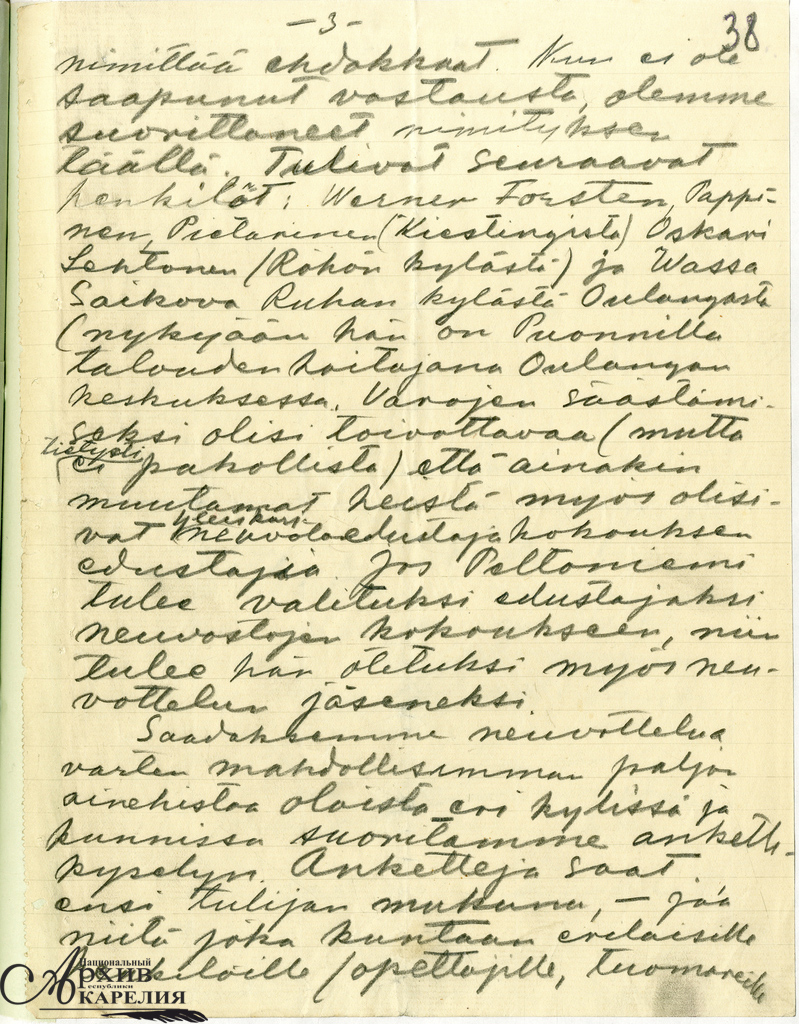 -3-
38
nimittää ehdokkaat. Kun ei ole
saapunut vastausta, olemme
suorittaneet nimityksen
täällä. Tulivat seuraavat
henkilöt: Werner Forsten, Pappi-
nen, Pietarinen (Kiestingistä) Oskari
Lehtonen (Röhön kylästä) ja Wassa
Saikova Ruhan kylästä Oulangasta
(nykyjään hän on Puonnilla
taloudenhoitajana Oulangan
keskuksessa. Varojen säästämi-
seksi olisi toivottavaa (mutta
tietysti
ei pakollista) että ainakin
muutamat heistä myös olisi-
yleiskar.
vat neuvolaedustajakokouksen
edustajia. Jos Peltoniemi
tulee valituksi edustajaksi
neuvostojen kokoukseen, niin
tulee hän otetuksi myös neu-
vottelun jäseneksi.
Saadaksemme neuvottelua
varten mahdollisimman paljon
ainehistoa oloista eri kylissä ja
kunnissa suoritamme ankett-
kyselyn. Anketteja saat
ensi tulijan mukana, – jaa
niitä joka kuntaan erilaisille
henkilöille (opettajille, tuomareille
Национальный
Архив
Республики
КАРЕЛИЯ